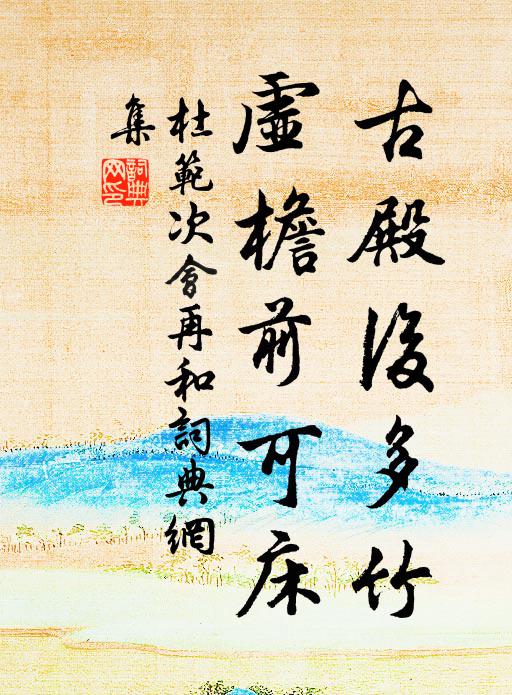 古殿後多竹
虛檐前可床
杜範次會再和詞典網
集
詞典網印